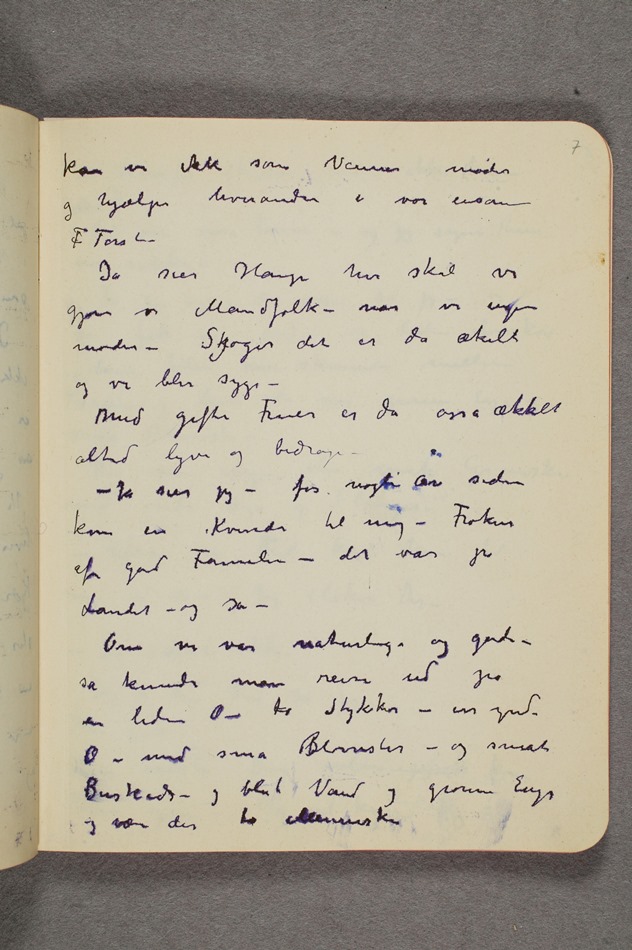 7
kan vi ikke som Venner mødes
og hjælpe hverandre i vor ensom
F Torst –
Ja sier Hauge hva skal vi
gjøre vi Mandfolk – naar vi ingen
møder – Skjøger det er da ækelt
og vi blir syge –
Med gifte Fruer er da ogsa ækkelt
altid lyve og bedrage –
– Ja sier jeg – for nogle år siden
kom en Kvinde til mig – Frøken
af god Familie – det var på
Landet – og sa –
Om vi var naturlige og gode –
sa kunde man reise ud på
en liden Ø – to Stykker – en grøn
Ø – med små Blomster – og smaat
Buskads – og blåt Vand og grønne Enge
og være der to Mennesker